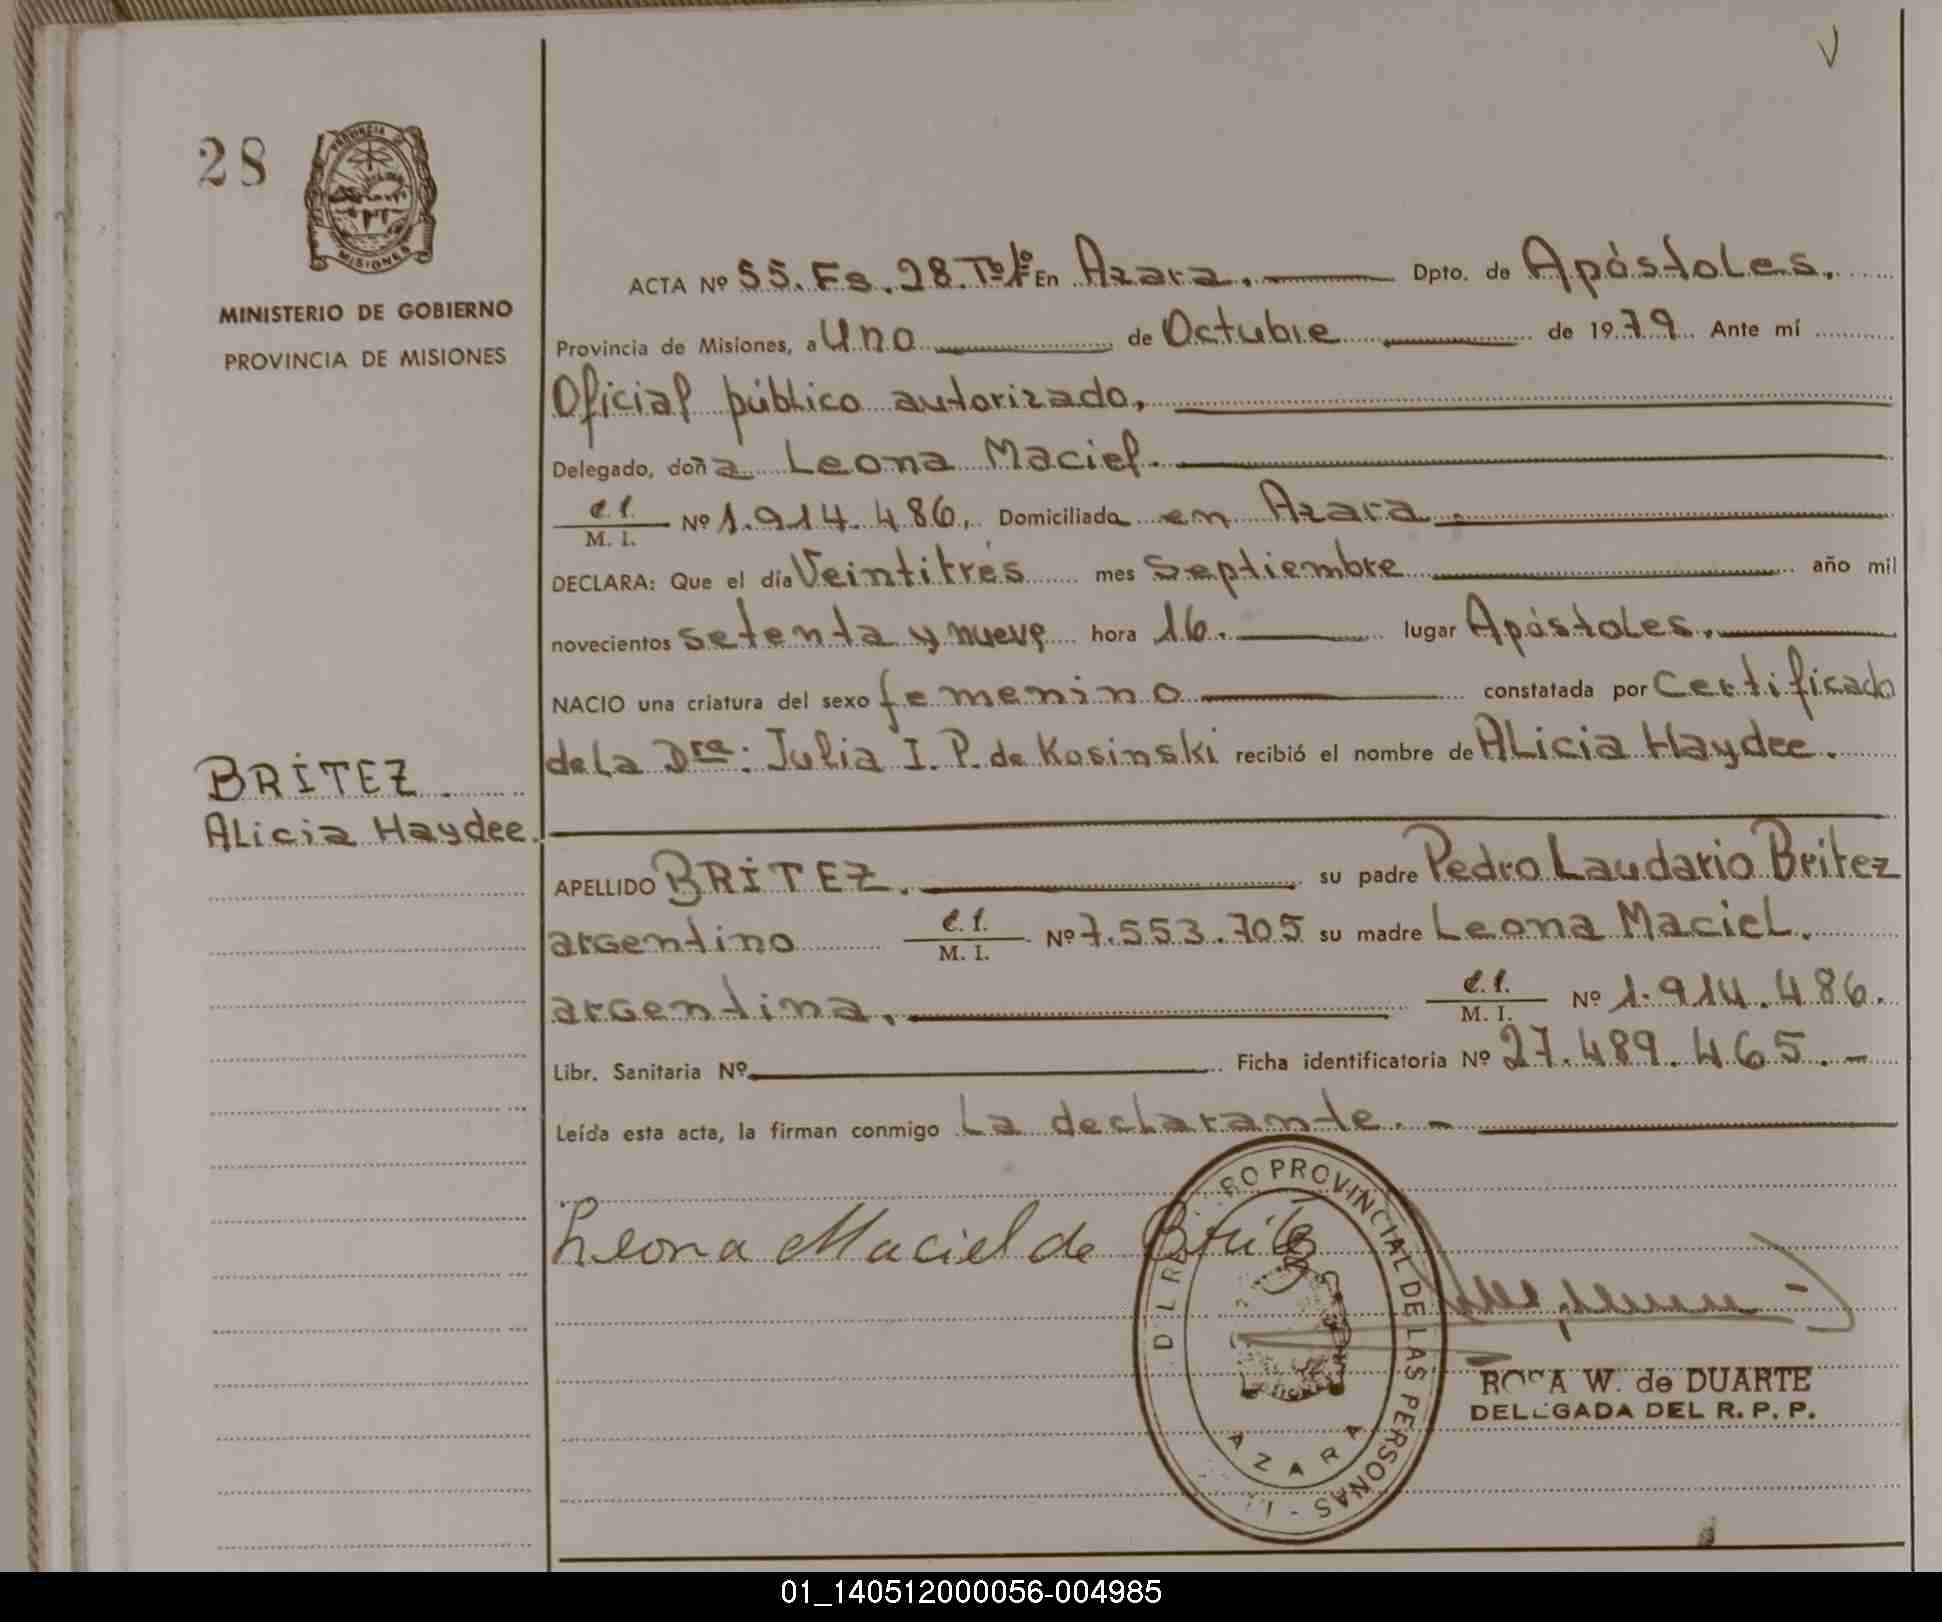 V
28
PROVINCIA
MISIONES
MINISTERIO DE GOBIERNO
PROVINCIA DE MISIONES
ACTA Nº 55. Fs. 28. Tº 1º En Azara. Dpto. de Apóstoles.
Provincia de Misiones, a Uno de Octubre de 1979 Ante mí
Oficial público autorizado,
Delegado, doña Leona Maciel.
C.I.
M. I. Nº 1.914.486, Domiciliada en Azara.
DECLARA: Que el día Veintitrés mes Septiembre año mil
novecientos setenta y nueve hora 16. lugar Apóstoles.
NACIO una criatura del sexo femenino constatada por Certificado
de la Dra: Julia I. P. de Kosinski recibió el nombre de Alicia Haydee.
BRÍTEZ
Alicia Haydee.
APELLIDO BRÍTEZ. su padre Pedro Laudario Britez
argentino C.I.
M. I. Nº 7.553.705 su madre Leona Maciel.
argentina. C.I.
M. I. Nº 1.914.486.
Libr. Sanitaria Nº Ficha identificatoria Nº 27.489.465.-
Leída esta acta, la firman conmigo La declarante.-
Leona Maciel de Britez
RO PROVINCIAL DE LAS PERSONAS
AZARA
ROSA W. de DUARTE
DELEGADA DEL R. P. P.
01_140512000056-004985